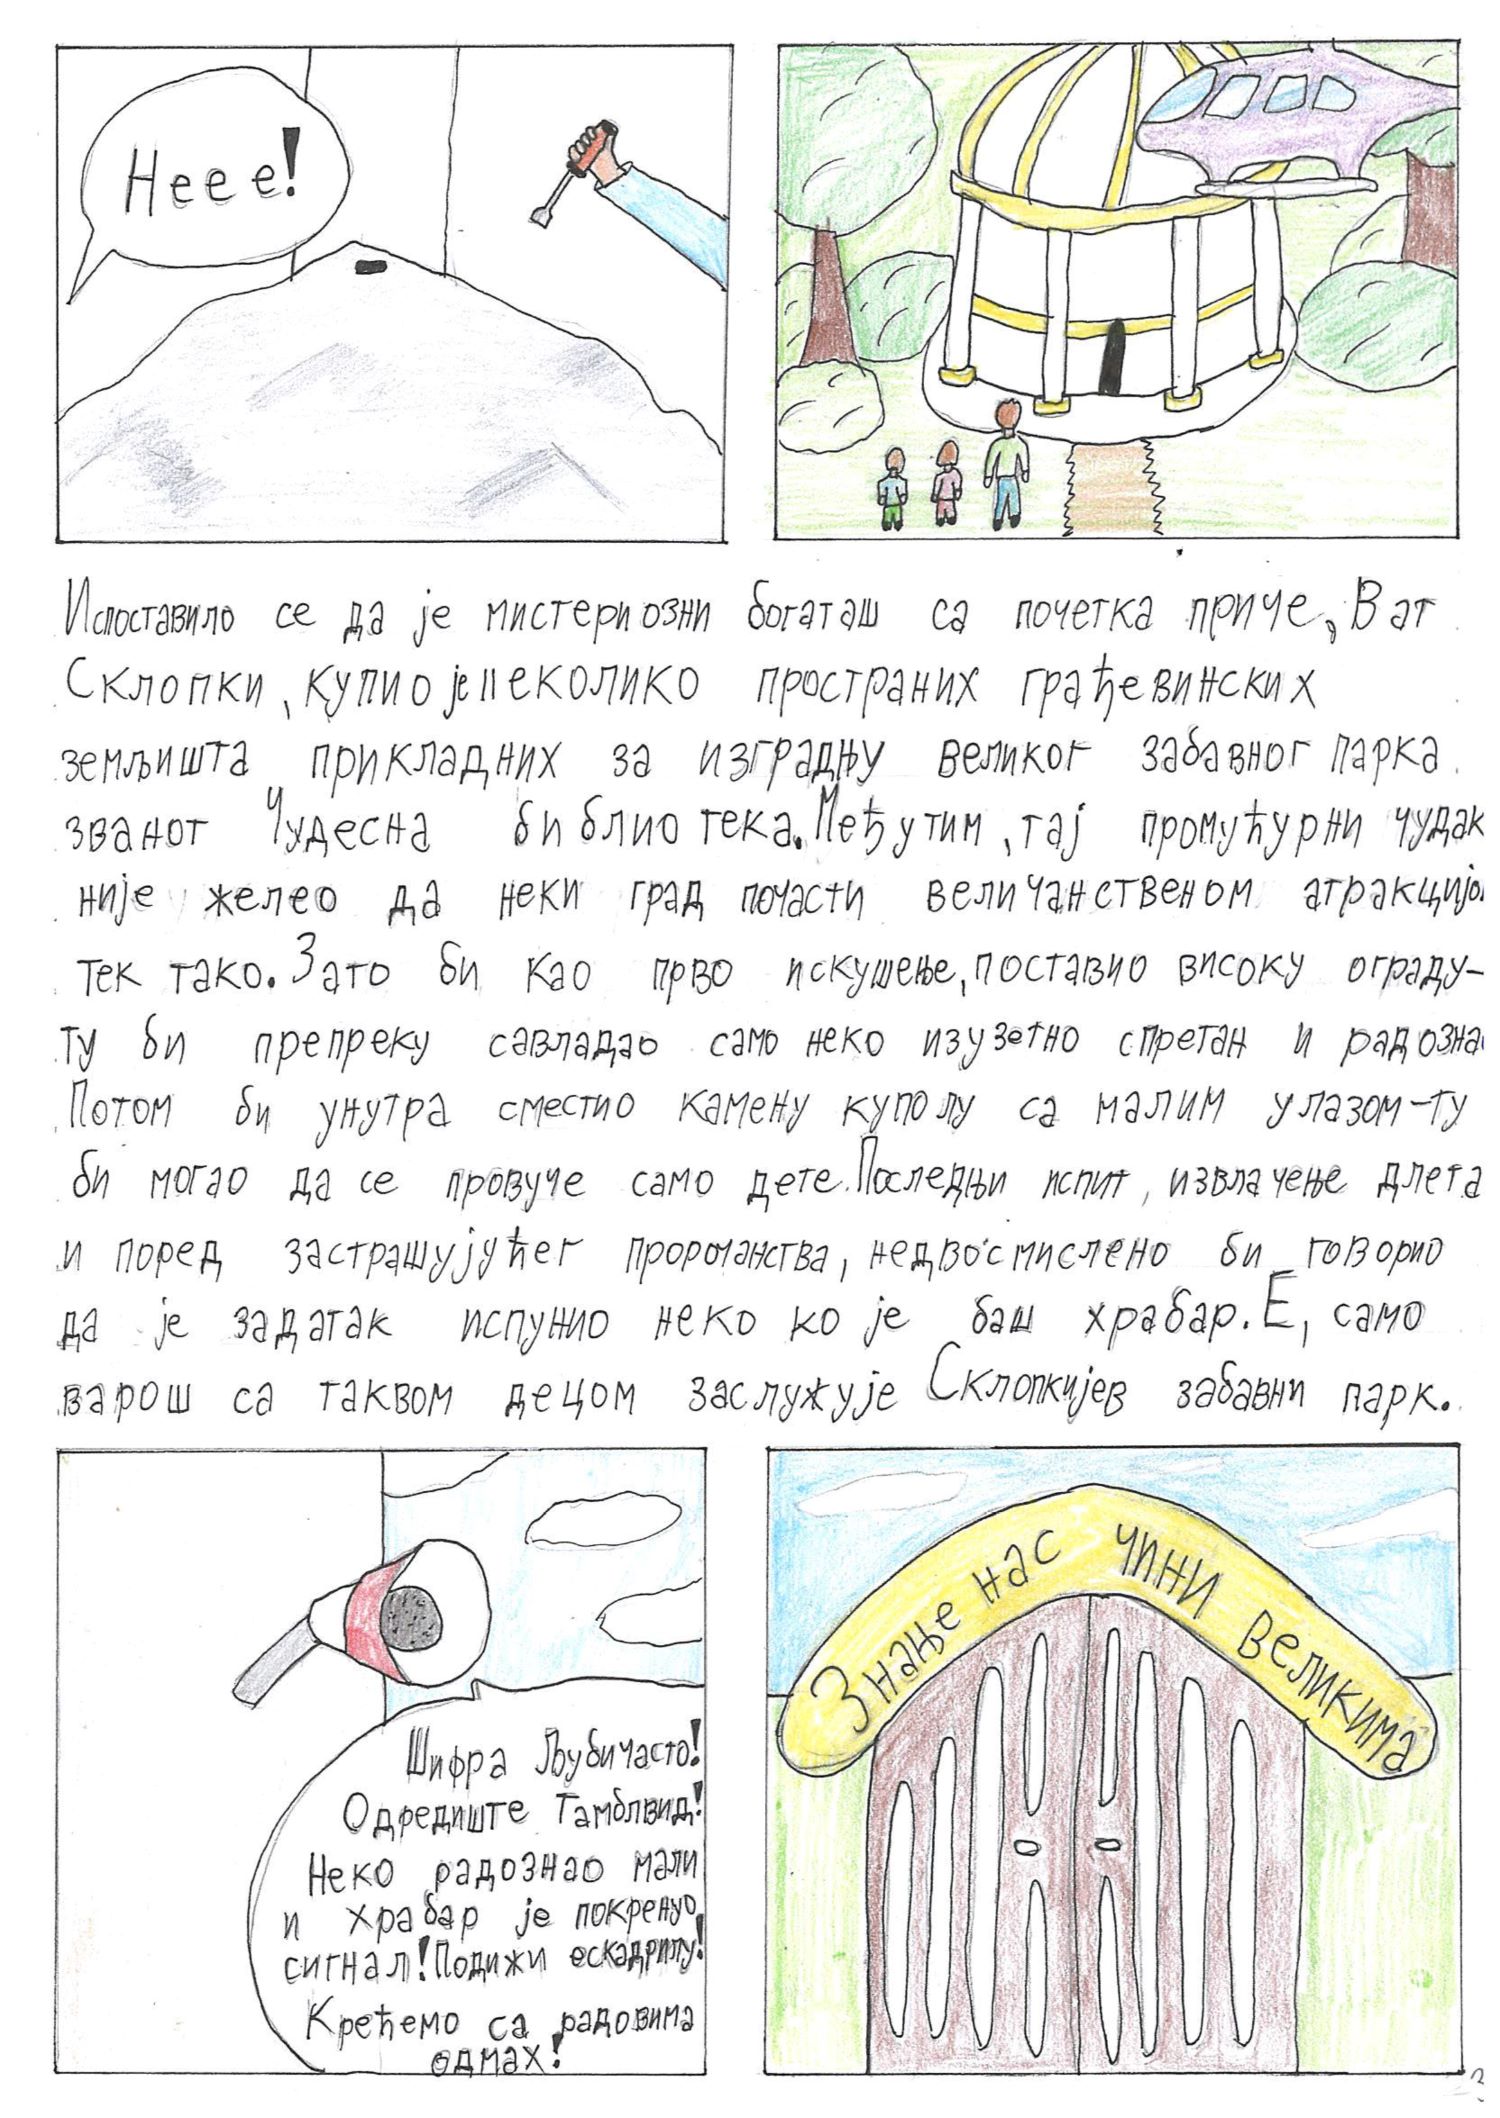 Неее!
Испоставило се да је мистериозни богаташ са почетка приче, Ват
Склопки, купио је неколико пространих грађевинских
земљишта прикладних за изградњу великог забавног парка
званог Чудесна библиотека. Међутим, тај промућурни чудак
није желео да неки град почасти величанственом атракцијо
тек тако. Зато би као прво искушење, поставио високу ограду-
ту би препреку савладао само неко изузетно спретан и радозна
Потом би унутра сместио камену куполу са малим улазом-ту
би могао да се провуче само дете. Последњи испит, извлачење длета
и поред застрашујућег пророчанства, недвосмислено би говорио
да је задатак испунио неко ко је баш храбар. Е, само
варош са таквом децом заслужује Склопкијев забавни парк.
Шифра Љубичасто!
Одредиште Тамблвид!
Неко радознао мали
и храбар је покренуо
сигнал! Подижи ескадрилу!
Крећемо са радовима
одмах!
Знање нас чини великима
3